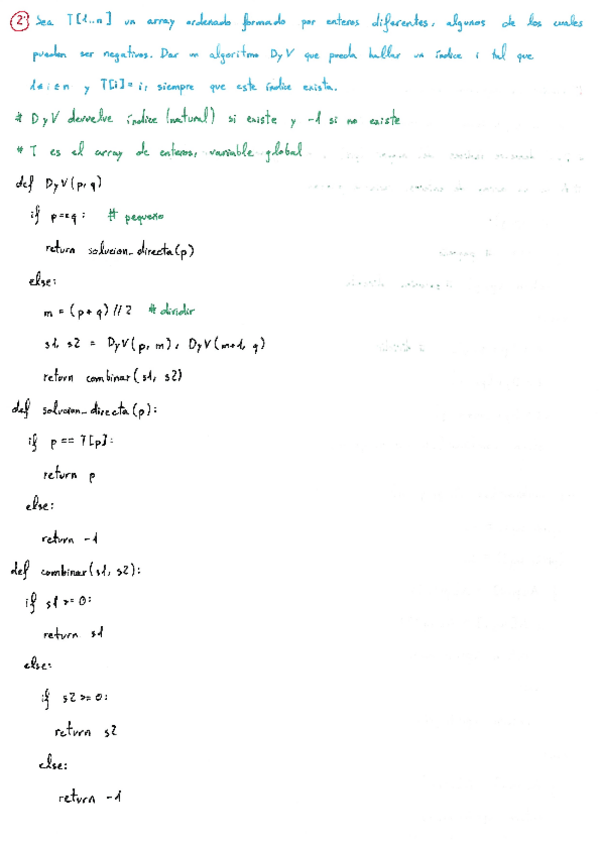 ② Sea T[1..n] un array ordenado formado por enteros diferentes, algunos de los cuales
pueden ser negativos. Dar un algoritmo DyV que pueda hallar un índice i tal que
1≤i≤n y T[i]=i, siempre que este índice exista.
# DyV devuelve índice (natural) si existe y -1 si no existe
# T es el array de enteros, variable global
def DyV(p,q)
if p==q: # pequeño
return solucion_directa(p)
else:
m = (p+q)//2 # dividir
s1, s2 = DyV(p,m), DyV(m+1, q)
return combinar(s1, s2)
def solucion_directa(p):
if p == T[p]:
return p
else:
return -1
def combinar(s1, s2):
if s1 >= 0:
return s1
else:
if s2 >= 0:
return s2
else:
return -1